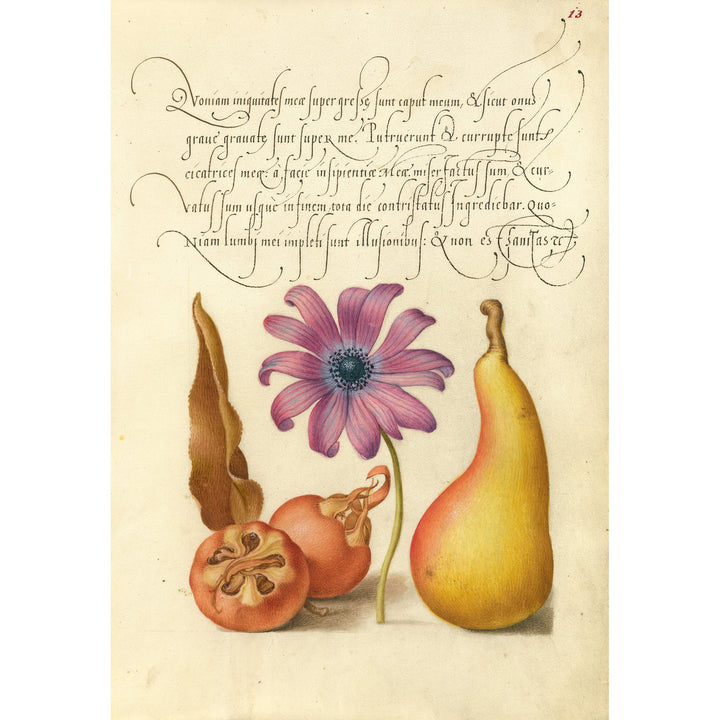 13
Quoniam iniquitates meæ supergresse sunt caput meum, & sicut onus
graue grauate sunt super me. Putruerunt & currupte sunt
cicatrices meæ: á facie insipientiæ Meæ. miser factus sum & cur-
Vatus sum usque in finem, tota die contristatus Ingrediebar. Quo-
Niam lumbi mei impleti sunt illusionibus: & non est sanitas &c